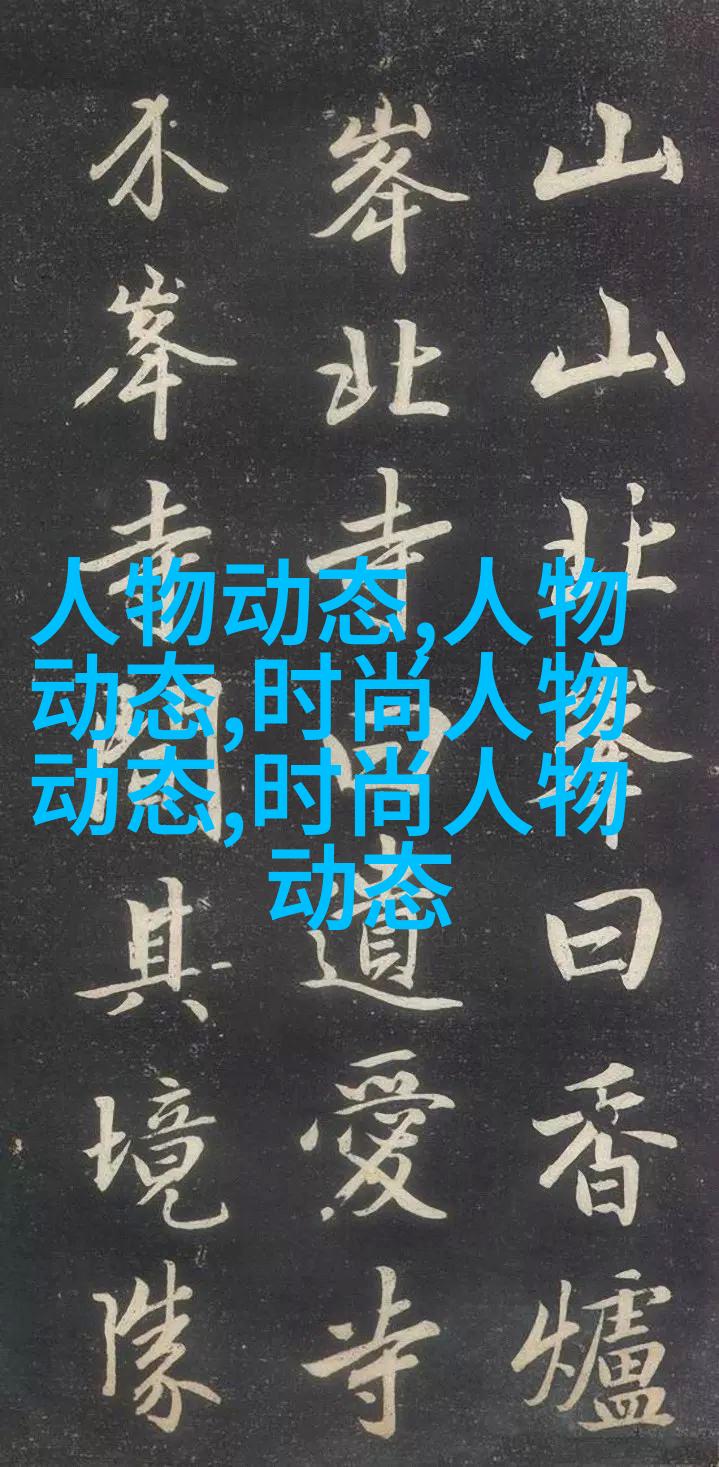 山山北峯曰香爐
峯北寺曰遺愛寺
介峯寺間其境勝
人物动态,人物
动态,时尚人物
动态,时尚人物
动态